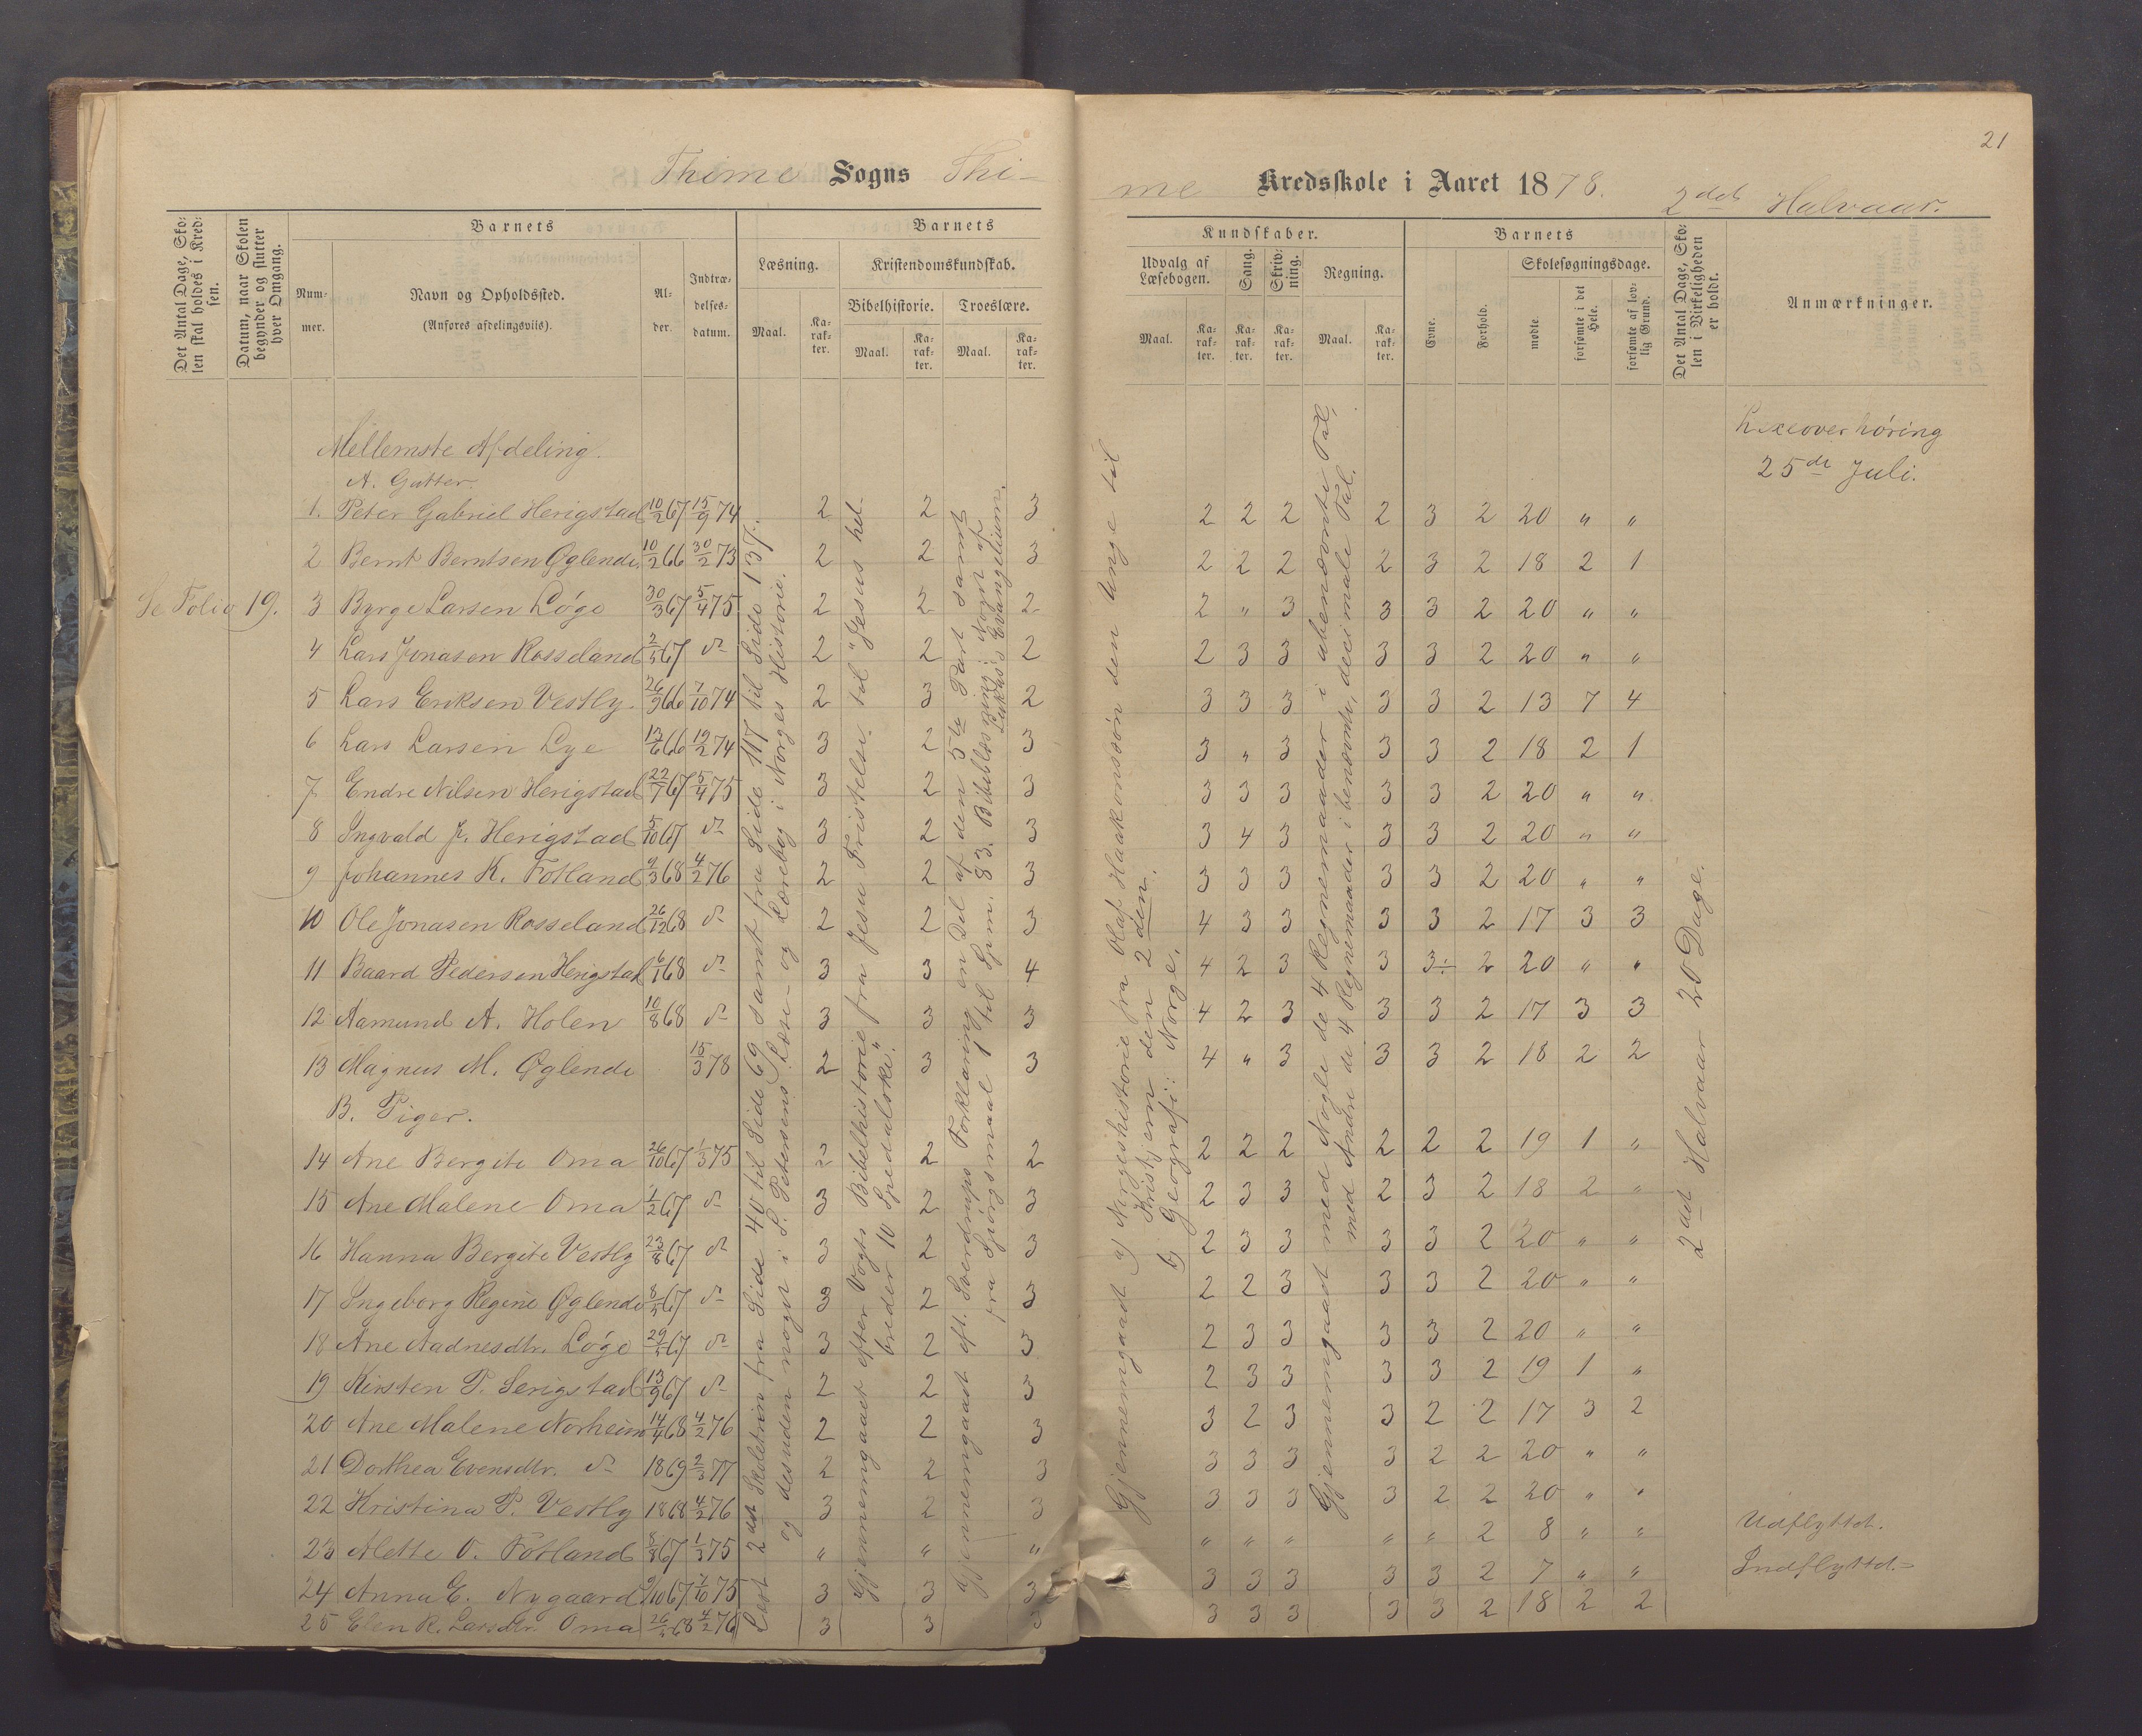 21
Thime Sogns Thi-
me Kredsskole i Aaret 1878. 2det Halvaar.
Det Antal Dage, Skolen skal holdes i Kredsen.
Datum, naar Skolen begynder og slutter hver Omgang.
Barnets
Nummer.
Navn og Opholdssted.
(Anføres afdelingsviis).
Alder.
Indtrædelsesdatum.
Barnets
Læsning.
Maal.
Karakter.
Kristendomskundskab.
Bibelhistorie.
Maal.
Karakter.
Troeslære.
Maal.
Karakter.
Kundskaber.
Udvalg af Læsebogen.
Maal.
Karakter.
Sang.
Karakter.
Skrivning.
Karakter.
Regning.
Maal.
Karakter.
Barnets
Evne.
Forhold.
Skolesøgningsdage.
mødte.
forsømte i det Hele.
forsømte af lovlig Grund.
Det Antal Dage, Skolen i Virkeligheden er holdt.
Anmærkninger.
Mellemste Afdeling.
A. Gutter.
Lexeoverhøring
25de Juli.
1. Peter Gabriel Herigstad 10/2 67 15/9 74 2 2 3 2 2 2 2 3 2 20 " "
2 Bernt Berntsen Øglende 10/2 66 30/2 73 2 2 3 2 2 2 2 3 2 18 2 1
Se Folio 19. 3 Byrge Larsen Løge 30/3 67 5/4 75 2 2 2 2 " 3 3 3 2 20 " "
4 Lars Jonasen Rosseland 2/5 67 do 2 2 2 2 3 3 3 3 2 20 " "
5 Lars Eriksen Vestly 26/9 66 7/10 74 2 3 2 3 3 3 3 3 2 13 7 4
6 Lars Larsen Lye 12/6 66 19/2 74 3 2 3 3 " 3 3 3 2 18 2 1
7 Endre Nilsen Herigstad 22/7 67 5/4 75 3 2 3 3 3 3 3 3 2 20 " "
8 Ingvald J. Herigstad 5/10 67 do 3 2 3 3 4 3 3 3 2 20 " "
9 Johannes K. Fotland 9/3 68 4/2 76 2 2 3 3 3 3 3 3 2 20 " "
10 Ole Jonasen Rosseland 26/12 68 do 2 2 3 4 3 3 3 3 2 17 3 3
11 Baard Pedersen Herigstad 6/1 68 do 3 3 4 4 2 3 3 3÷ 2 20 " "
12 Aamund A. Holen 10/8 68 do 3 3 3 4 2 3 3 3 2 17 3 3
13 Magnus M. Øglende 15/3 78 2 3 3 4 " 3 3 3 2 18 2 2
B. Piger.
14 Ane Bergite Oma 26/10 67 1/3 75 2 2 2 2 2 2 2 2 2 19 1 "
15 Ane Malene Oma 1/2 67 do 3 2 3 2 3 3 2 3 2 18 2 "
16 Hanna Bergite Vestly 23/8 67 do 3 2 3 2 3 3 3 3 2 20 " "
17 Ingeborg Regine Øglende 8/5 67 do 3 2 3 2 2 3 3 3 2 20 " "
18 Ane Aadnesdtr. Løge 29/5 67 do 3 2 3 2 3 3 3 3 2 20 " "
19 Kirsten P. Serigstad 13/9 67 do 2 2 3 2 3 3 3 3 2 19 1 "
20 Ane Malene Norheim 14/4 68 4/2 76 2 2 3 3 2 3 3 2 2 17 3 2
21 Dorthea Evensdtr. do 1869 2/3 77 2 2 3 3 3 3 3 2 2 20 " "
22 Kristina P. Vestly 1868 4/2 76 3 2 3 3 3 3 3 2 2 20 " "
23 Alette O. Fotland 8/8 67 1/3 75 " " " " " " " " 2 8 " " Udflyttet.
24 Anna E. Nygaard 9/10 67 7/10 75 3 3 3 3 3 3 3 3 2 7 " " Indflyttet.
25 Elen R. Larsdtr. Oma 26/ 68 4/2 76 3 3 3 3 3 3 3 3 2 18 2 2
Læst 2det Skoletrin fra Side 40 til Side 69 samt fra Side 117 til Side 137.
og desuden noget i S. Petersens Læse- og Lærebog i Norges Historie.
Gjennemgaaet efter Vogts Bibelhistorie fra Jesu Fristelse til "Jesus hel-
breder 10 Spedalske".
Gjennemgaaet eft. Sverdrups Forklaring en Del af den 5te Part samt
fra Spørgsmaal 1 til Spm. 83. Bibellæsning: Noget af
Lukas's Evangelium.
Gjennemgaaet a) Norgeshistorie fra Olaf Haakonssøn den Unge til
Kristjern den 2den.
b) Geografi: Norge.
Gjennemgaaet med Nogle de 4 Regnemaader i ubenævnte Tal,
med Andre de 4 Regnemaader i benævnte, decimale Tal.
2det Halvaar 20 Dage.